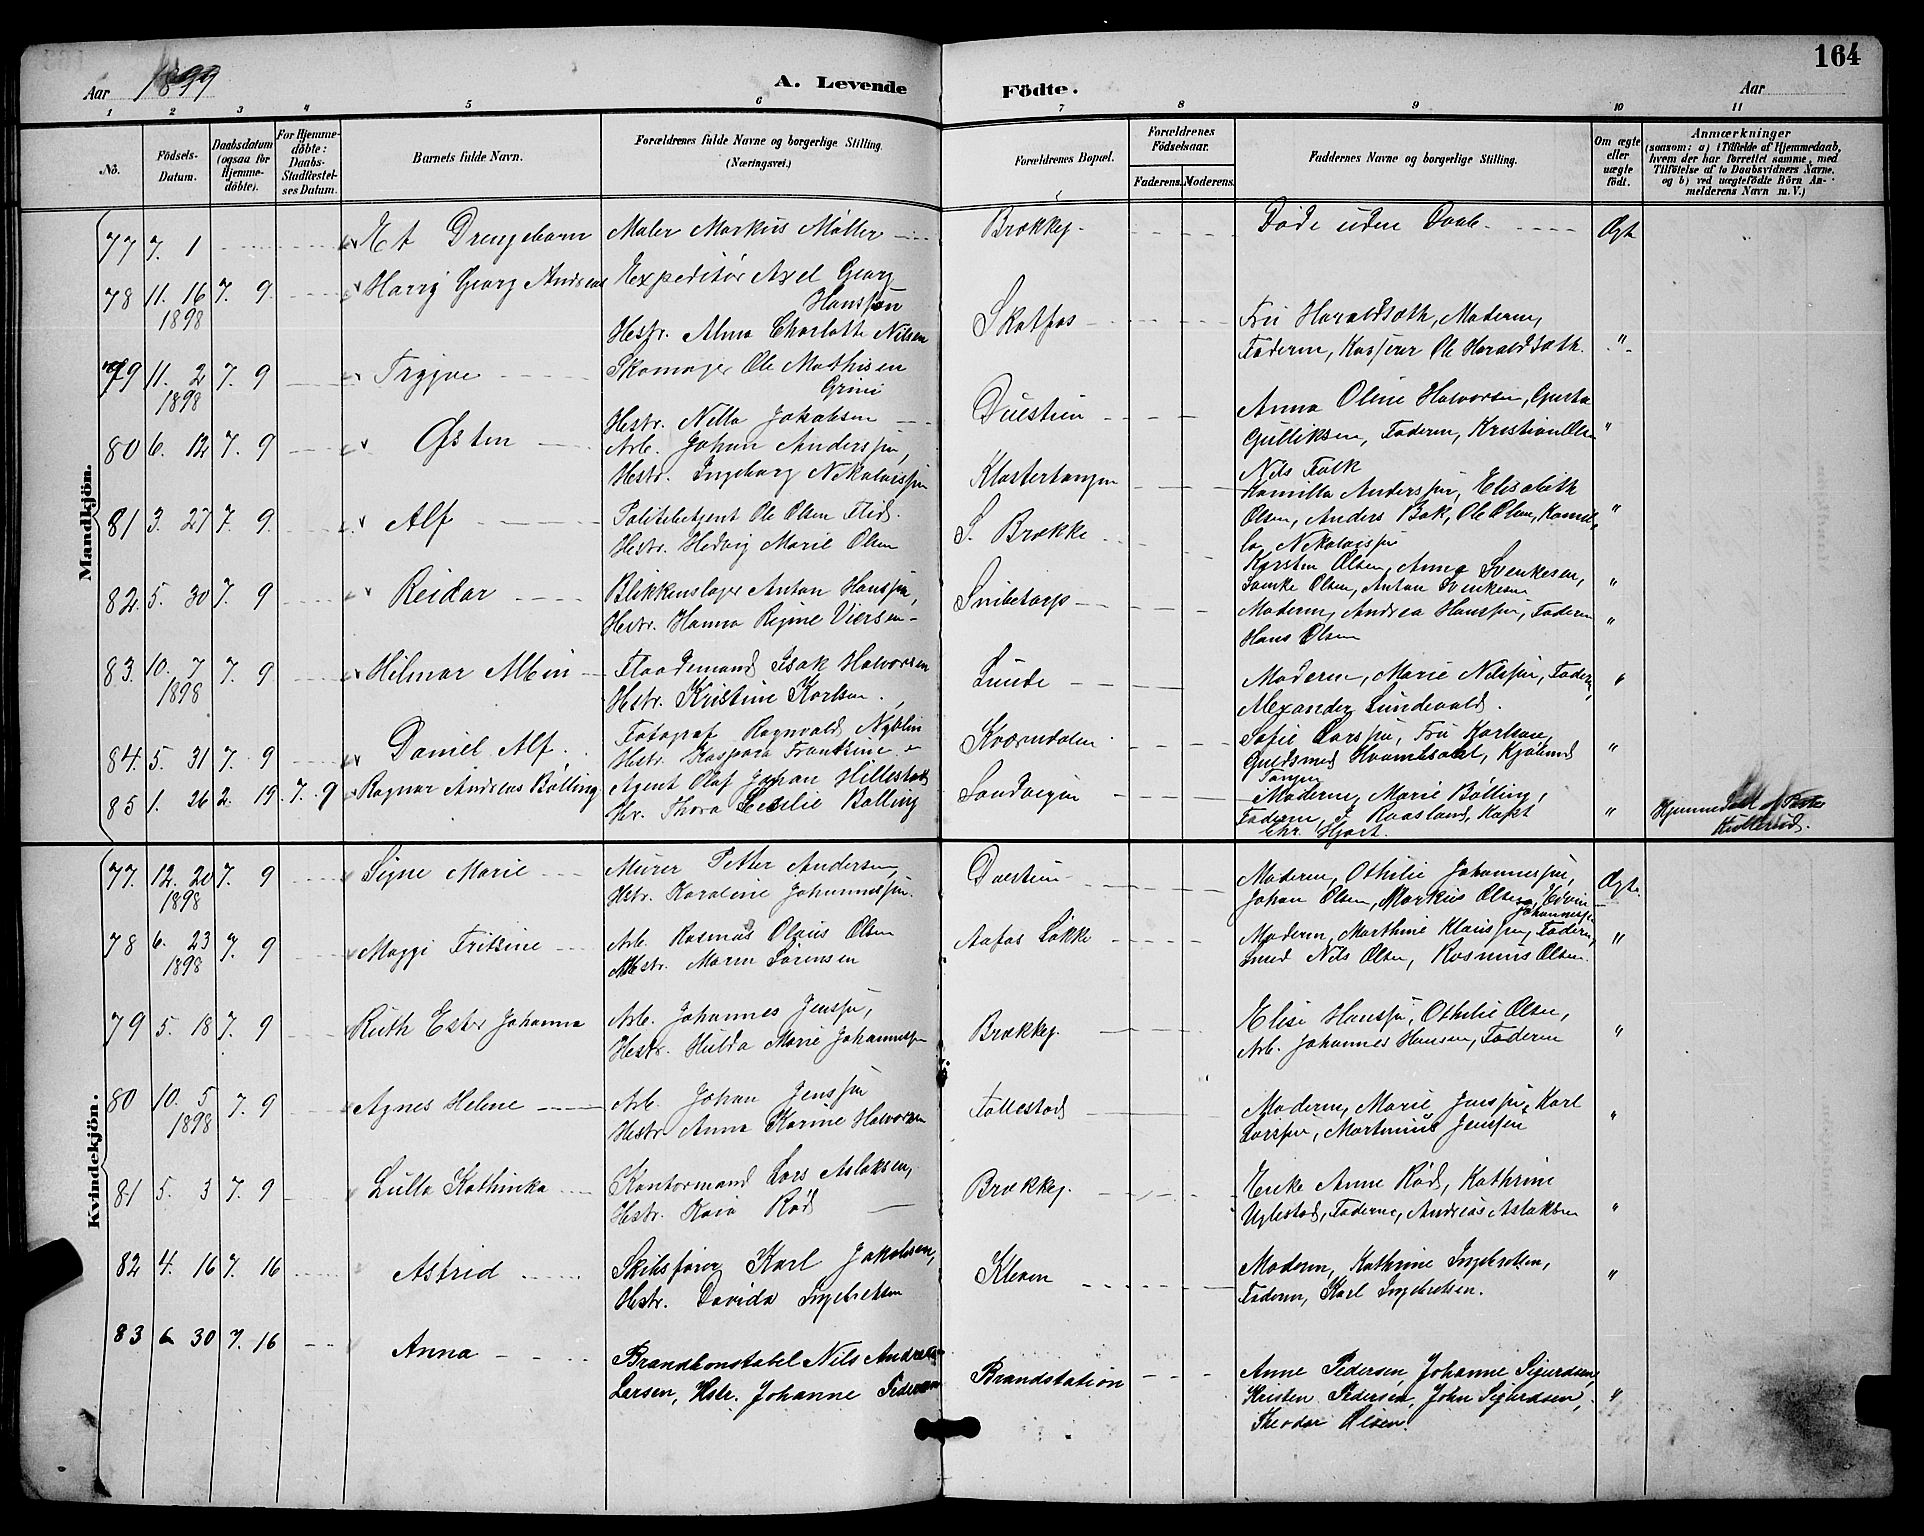 164
Aar 1899
A. Levende Födte.
Aar
1 2 3 4 5 6 7 8 9 10 11
No.
Födsels-Datum.
Daabsdatum (ogsaa for Hjemmedöbte).
For Hjemmedöbte: Daabs-Stadfæstelses Datum.
Barnets fulde Navn.
Forældrenes fulde Navne og borgerlige Stilling. (Næringsvei.)
Forældrenes Bopæl.
Forældrenes Födselsaar.
Faderens. Moderens.
Faddernes Navne og borgerlige Stilling.
Om ægte eller uægte födt.
Anmærkninger
(saasom: a) i Tilfælde af Hjemmedaab, hvem der har forrettet samme, med Tilföielse af to Daabsvidners Navne, og b) ved uægtefödte Börn Anmelderens Navn m. V.)
Mandkjön.
77 7. 1 Et Drengebarn Maler Markus Møller Brækkeg. Døde uden Daab. Ægte
78 11. 16 1898 7. 9 Harry Georg Andreas Expeditør Axel Georg
Hanssøn
Hestr. Alma Charlotte Nilsen Skotfos Fru Haraldsæth, Moderen,
Faderen, Kasserer Ole Haraldsæth. "
79 11. 2 1898 7. 9 Trygve Skomager Ole Mathisen
Grini
Hestr. Nella Jakobsen Duestien Anna Oline Halvorsen,
Gulliksen, Faderen, Kristian Olsen "
80 6. 12 7. 9 Østen Arb. Johan Anderssen,
Hestr. Ingeborg Nikolaissen Klostertangen Nils Falk
Kamilla Anderssen, Elisabeth
81 3. 27 7. 9 Alf Politibetjent Ole Olsen
Hestr. Hedvig Marie Olsen S. Brække Olsen, Anders Bak, Ole Olsen, Kamil-
la Nikolaissen "
Karsten Olsen, Anna Svenkesen,
82 5. 30 7. 9 Reidar Blikkenslager Anton Hanssen,
Hestr. Hanna Regine Viersen Snibetorp Svenke Olsen, Anton Svenkesen "
Moderen, Andrea Hanssen, Faderen
Hans Olsen "
83. 10. 7 1898 7. 9 Hilmar Albin Flaademand Isak Halvorsen
Hestr. Kristine Karlsen Lunde Moderen, Marie Nilssen, Faderen,
Alexander Lundevald. "
84. 5. 31 7. 9 Daniel Alf. Fotograf Ragnvald Nyblin
Hestr. Kaspara Frantsine Kværndalen Sofie Larssen, Fru Karlsen,
Guldsmed "
85 1. 26 2. 19 7. 9 Ragnar Andreas Bølling Agent Olaf Johan Hillestad
Hr. Thora Cecilie Bølling Sandvigen Moderen, Marie Bølling,
Faderen, Raasland, Kapt
Chr. Hjort. " Hjemmedøbt
Kvindekjön.
77. 12. 20 1898 7. 9 Signe Marie Murer Petter Andersen,
Hestr. Karoline Johannessen. Duestien Moderen, Othilie Johannessen,
Johan Olsen, Markus Olsen, Edvin
Johannessen Ægte
78 6. 23 1898 7. 9 Maggi Fritsine Arb. Rasmus Olaus Olsen
Hestr. Maren Sørensen Aafos Løkke Moderen, Marthine Klaussen, Faderen,
Smed Nils Olsen, Rasmus Olsen. "
79 5. 18 7. 9 Ruth Ester Johanna Arb. Johannes Jenssen,
Hestr. Hulda Marie Johannessen Brækkeg. Elise Hanssen, Othilie Olsen,
Arb. Johannes Hansen, Faderen "
80 10. 5 1898 7. 9 Agnes Helene Arb. Johan Jenssen
Hestr. Anna Karine Halvorsen Follestad Moderen, Marie Jenssen, Karl
Larssen, Martinius Jenssen "
81 5. 3 7. 9 Lulla Kathinka Kontormand Lars Aslaksen,
Hestr. Kaia Rød Brækkeg. Enke Anne Rød, Kathrine
Uglestad, Faderen, Andreas Aslaksen "
82 4. 16 7. 16 Astrid Skibsfører Karl Jakobsen,
Hestr. Davida Ingebretsen Kleven Moderen, Kathrine Ingebretsen,
Faderen, Karl Ingebretsen. "
83 6 30 7. 16 Anna Brandkonstabel Nils Andreas
Larsen, Hstr. Johanne Pedersen Brandstation Anne Pedersen, Johanne Sigurdsen,
Kristen Pedersen, John Sigurdsen,
Theodor Olsen. "